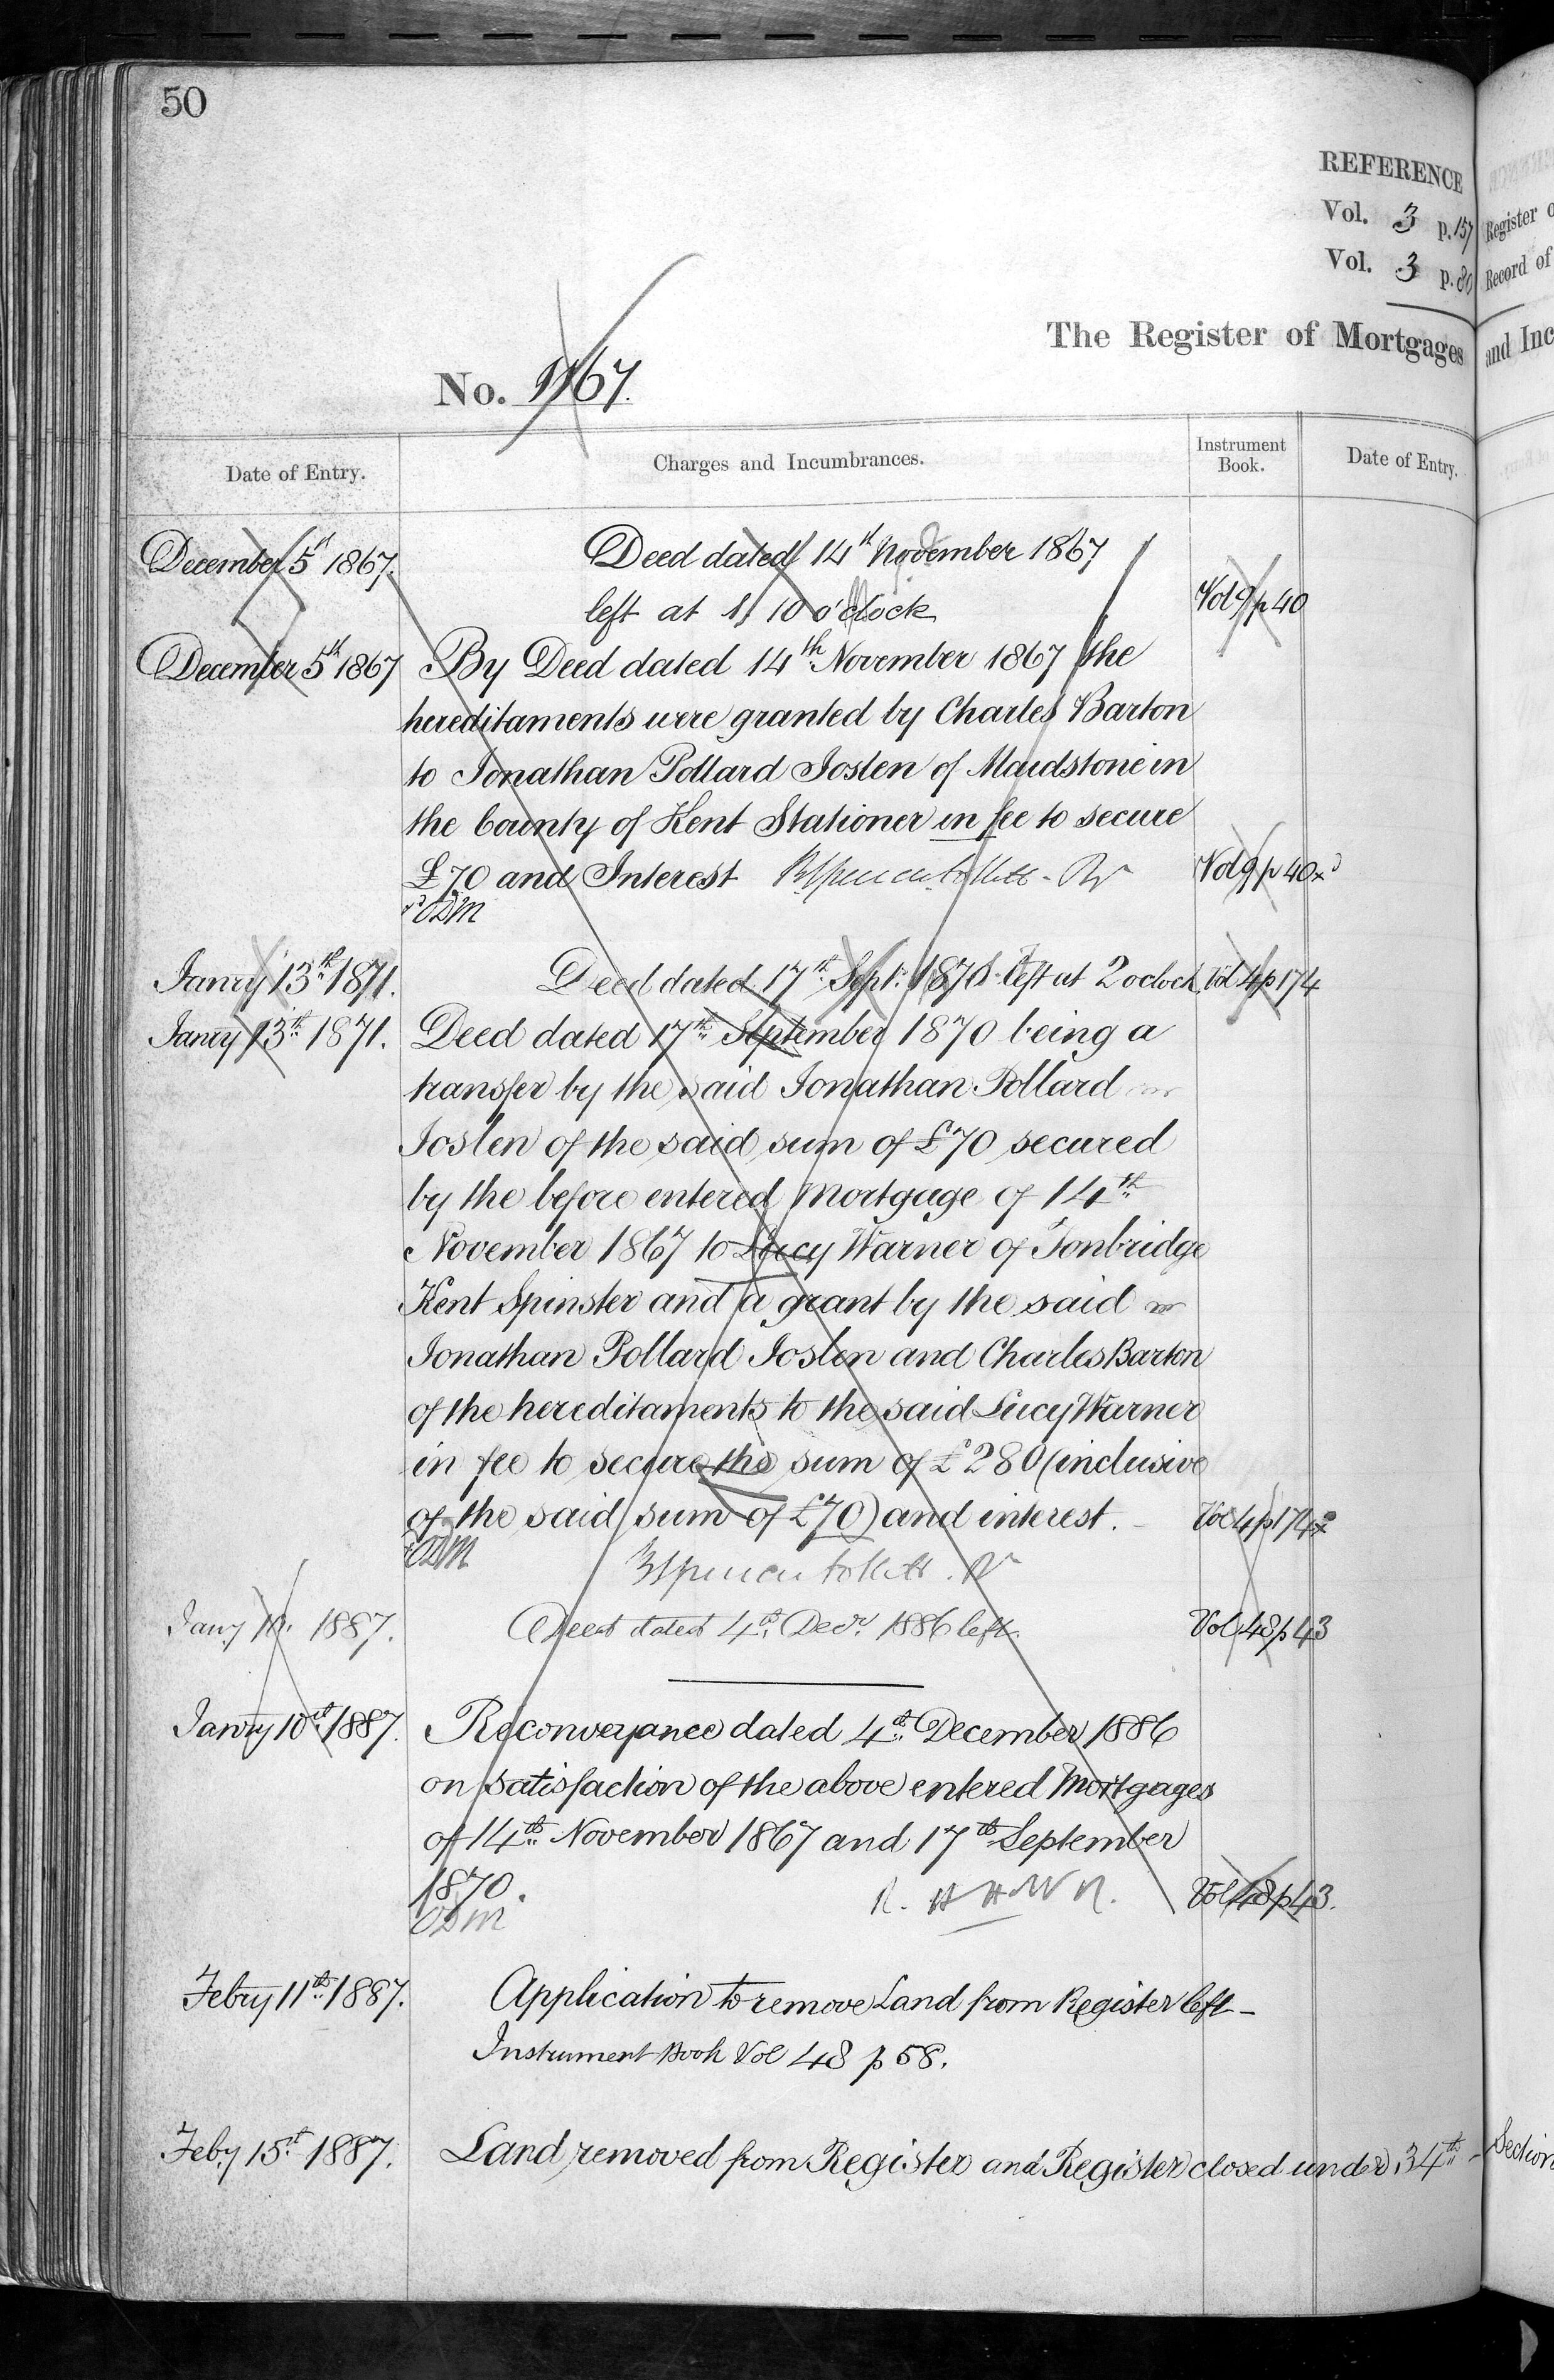 50
REFERENCE
Vol. 3 p. 157
Vol. 3 p. 80
Register o
Record of
The Register of Mortgages and Inc
No. 1167.
Date of Entry. Charges and Incumbrances. Instrument Book. Date of Entry.
December 5th 1867. Deed dated 14th November 1867
left at 10 o'clock Vol 9 p 40
December 5th 1867 By Deed dated 14th November 1867 the
hereditaments were granted by Charles Barton
to Jonathan Pollard Joslen of Maidstone in
the County of Kent Stationer in fee to secure
£70 and Interest Vol 9 p 40
ODM
Janry 13th 1871. Deed dated 17th Sept. 1870 left at 2 oclock Vol 4 p 174
Janry 13th 1871. Deed dated 17th September 1870 being a
transfer by the said Jonathan Pollard
Joslen of the said sum of £70 secured
by the before entered Mortgage of 14th
November 1867 to Lucy Warner of Tonbridge
Kent Spinster and a grant by the said
Jonathan Pollard Joslen and Charles Barton
of the hereditaments to the said Lucy Warner
in fee to secure the sum of £280 (inclusive
of the said sum of £70) and interest. Vol 4 p 174
ODM
Jany 10. 1887. Deed dated 4th Decr. 1886 left. Vol 48 p 43
Janry 10th 1887. Reconveyance dated 4th December 1886
on satisfaction of the above entered Mortgages
of 14th November 1867 and 17th September
1870. Vol 48 p 43.
ODM
Febry 11th 1887. Application to remove Land from Register left –
Instrument Book Vol 48 p 58.
Feby 15th 1887. Land removed from Register and Register closed under 34th – Section